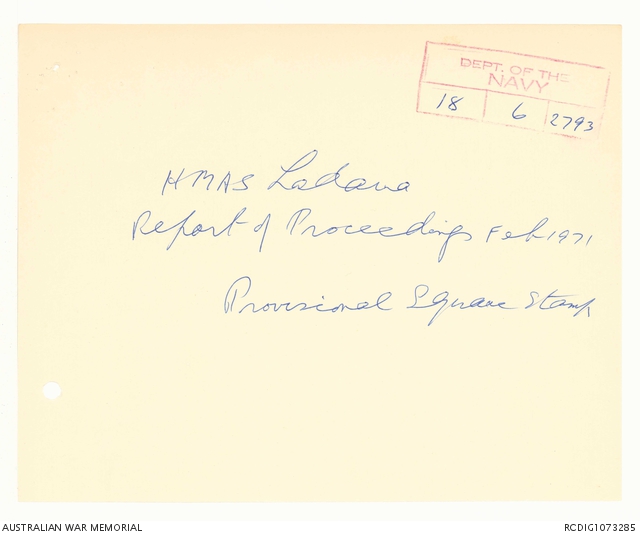 DEPT. OF THE
NAVY
18 6 2793
HMAS Ladava
Report of Proceedings Feb 1971
Provisional Square Stamp
AUSTRALIAN WAR MEMORIAL
RCDIG1073285